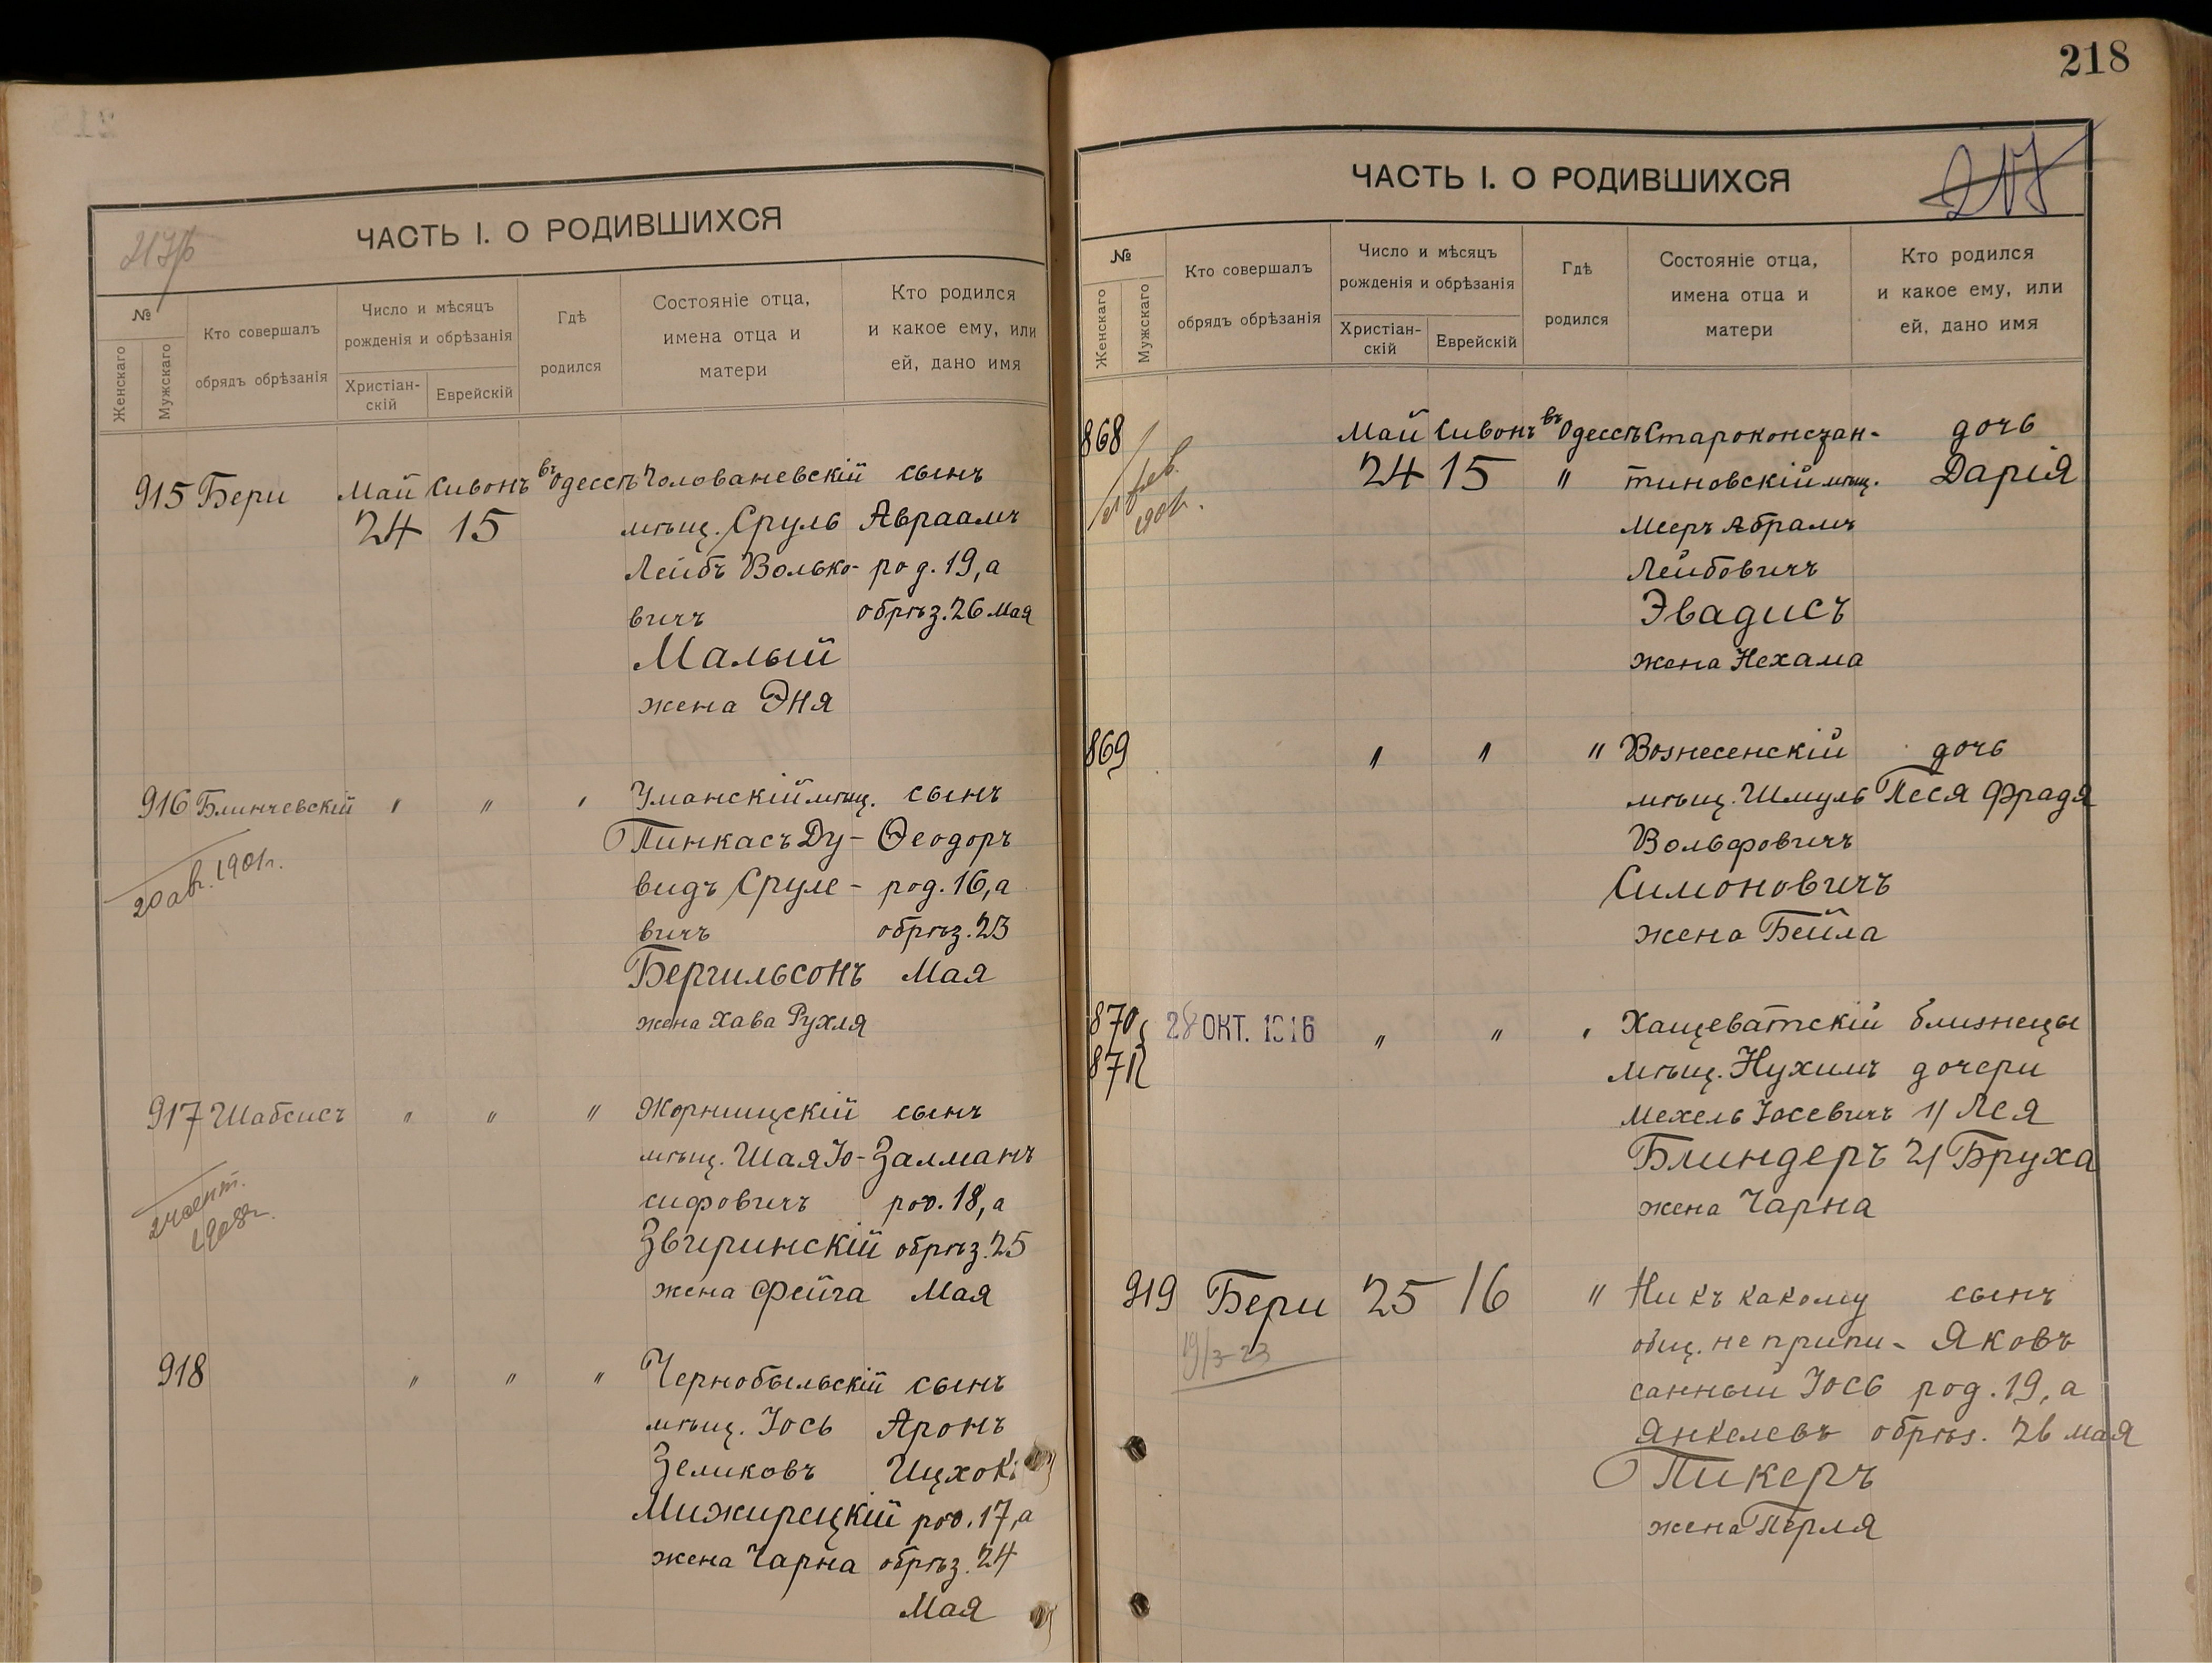 ЧАСТЬ I. О РОДИВШИХСЯ
№
Женскаго
Мужскаго
Кто совершалъ
обрядъ обрѣзанія
Число и мѣсяцъ
рожденія и обрѣзанія
Христіан-
скій
Еврейскій
Гдѣ
родился
Состояніе отца,
имена отца и
матери
Кто родился
и какое ему, или
ей, дано имя
915 Бери Май Сивонъ въ Одессѣ Голованевскій сынъ
24 15 мѣщ. Сруль Авраамъ
Лейбъ Волько- род. 19, а
вичъ обрѣз. 26 Мая
Малый
жена Эня
916 Блинчевскій " " " Уманскій мѣщ. сынъ
Пинкасъ Ду- Ѳеодоръ
видъ Сруле- род. 16, а
20 авг. 1901 г.
вичъ обрѣз. 23
Бергильсонъ Мая
жена Хава Рухля
917 Шабсисъ " " " Жорнищскій сынъ
мѣщ. Шая Іо- Залманъ
сифовичъ род. 18, а
Звѣринскій обрѣз. 25
жена Фейга Мая
918 " " " Чернобыльскій сынъ
мѣщ. Іось Аронъ
Зеликовъ Ицхокъ
Мижирецкій род. 17, а
жена Чарна обрѣз. 24
Мая
218
ЧАСТЬ I. О РОДИВШИХСЯ
217
№
Женскаго
Мужскаго
Кто совершалъ
обрядъ обрѣзанія
Число и мѣсяцъ
рожденія и обрѣзанія
Христіан-
скій
Еврейскій
Гдѣ
родился
Состояніе отца,
имена отца и
матери
Кто родился
и какое ему, или
ей, дано имя
868 Май Сивонъ въ Одессѣ Староконстан- дочь
24 15 " тиновскій мѣщ. Дарія
Мееръ Абрамъ
Лейбовичъ
Эвадисъ
жена Нехама
869 " " " Вознесенскій дочь
мѣщ. Шмуль Песя Фрадя
Вольфовичъ
Симоновичъ
жена Бейла
870 28 ОКТ. 1916 " " " Хащеватскій близнецы
871 мѣщ. Нухимъ дочери
Мехель Іосевичъ 1/ Лея
Блиндеръ 2/ Бруха
жена Чарна
919 Бери 25 16 " Ни къ какому сынъ
19/3-23
общ. не припи- Яковъ
санный Іось род. 19, а
Янкелевъ обрѣз. 26 мая
Пикеръ
жена Перля